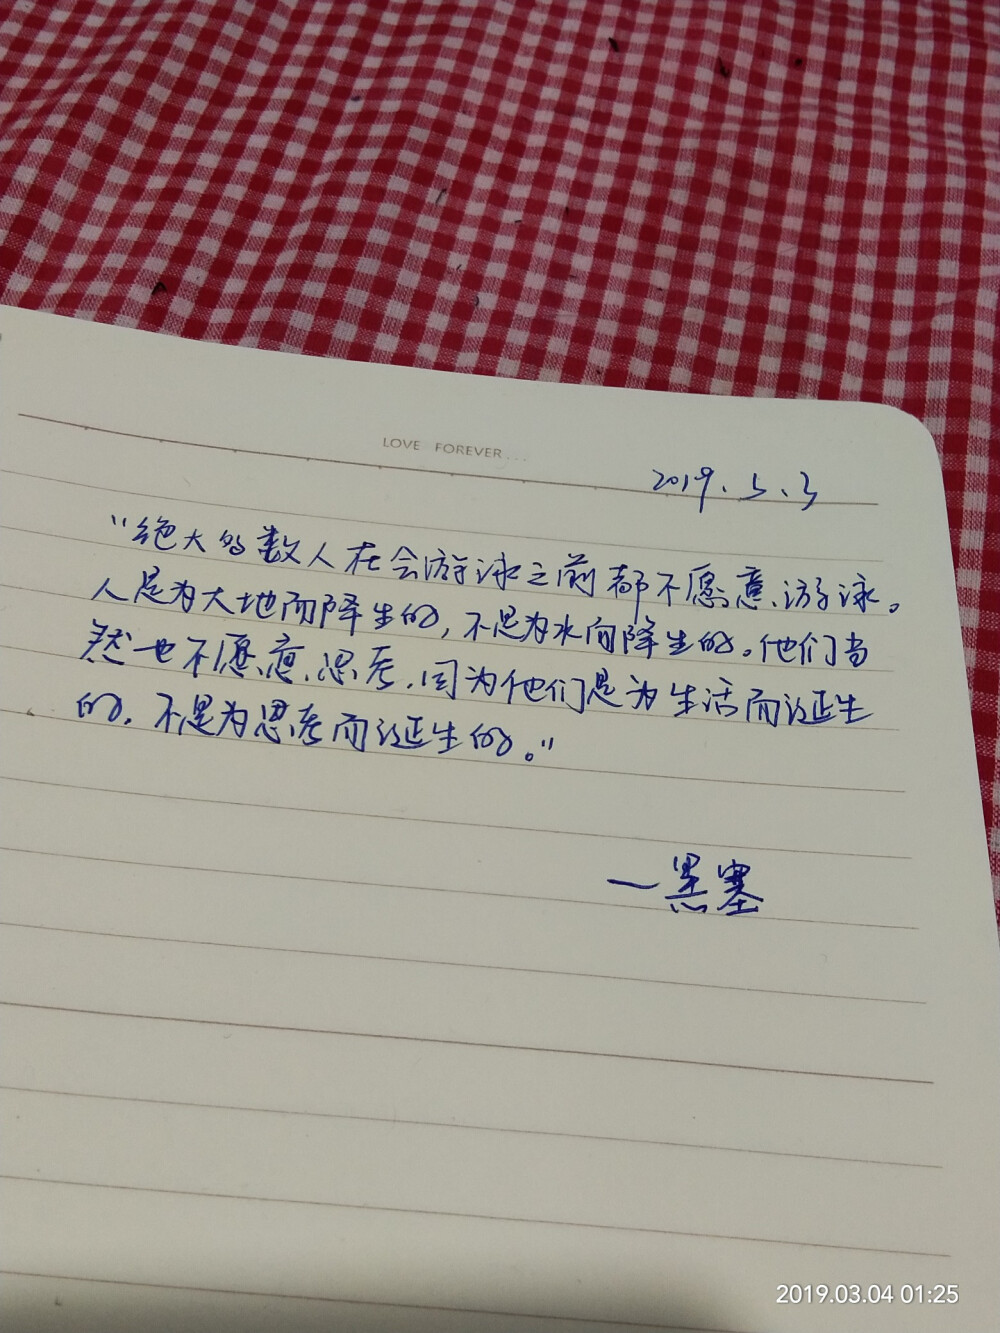 LOVE FOREVER...
2019.3.3
"绝大多数人在会游泳之前都不愿意游泳。
人是为大地而降生的,不是为水而降生的。他们当
然也不愿意思考,因为他们是为生活而诞生
的,不是为思考而诞生的。"
—黑塞
2019.03.04 01:25